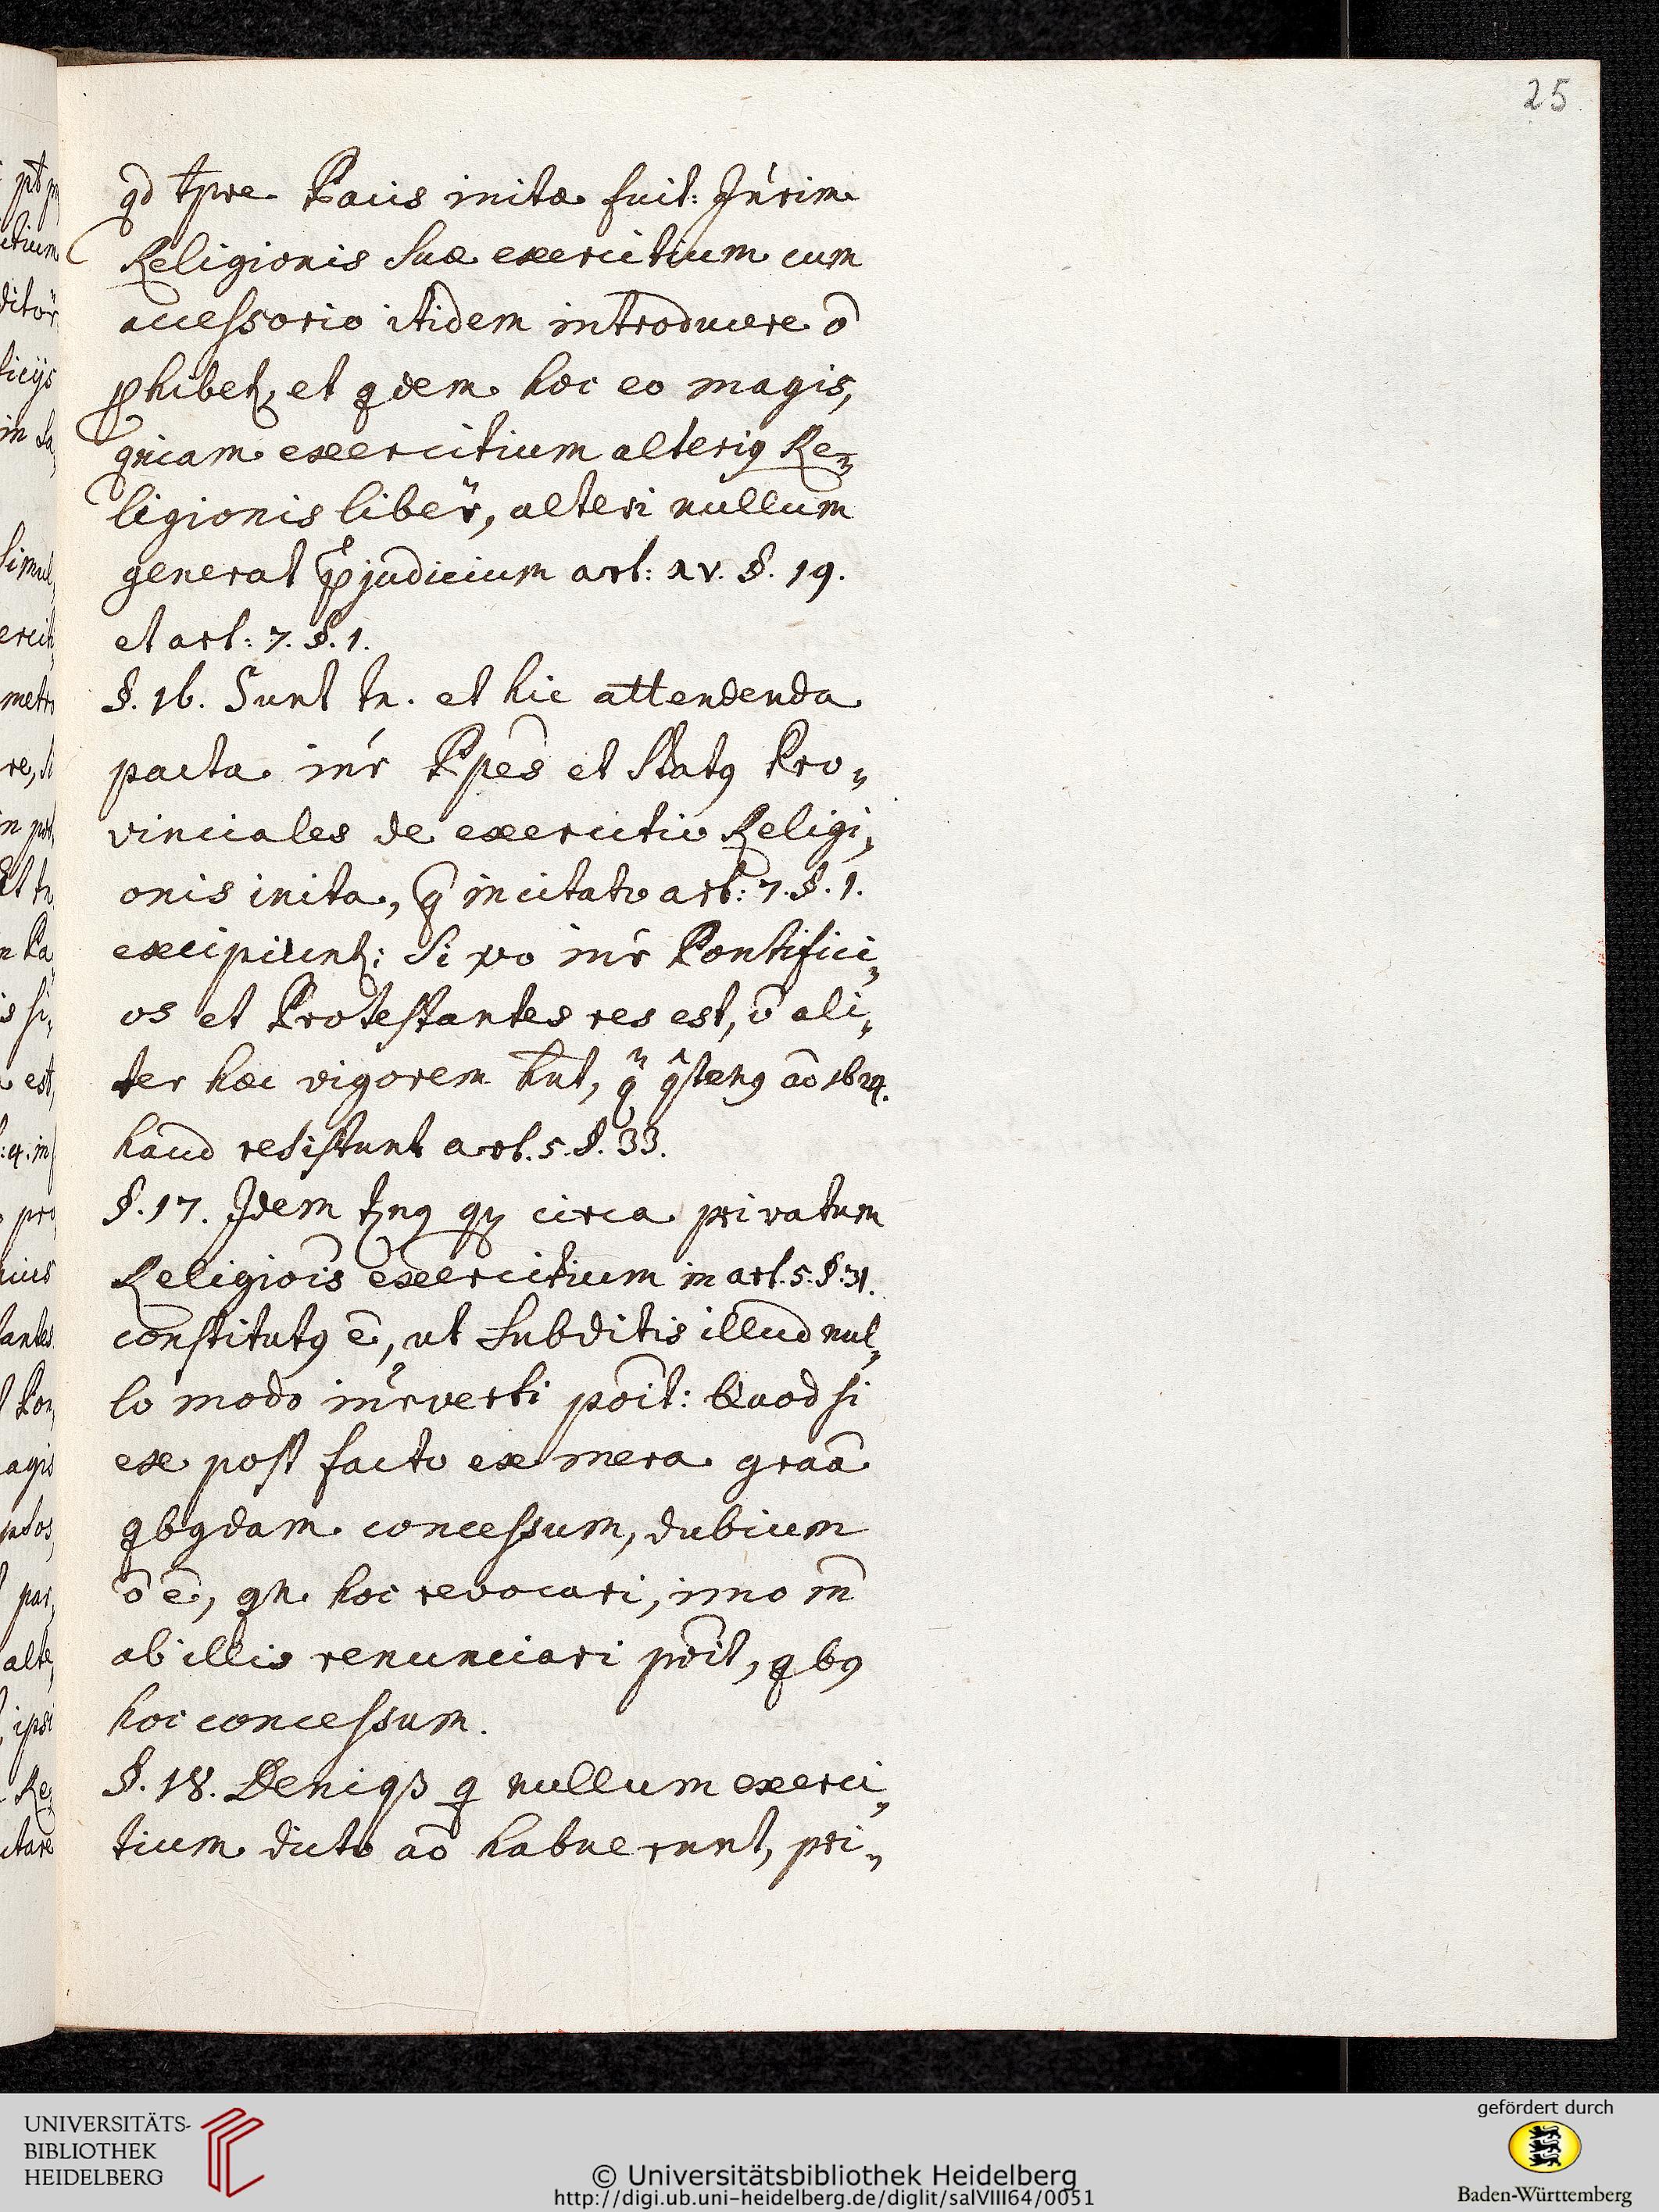 25
qd tpre Pacis initæ fuit: Int́rim
Religionis suæ exercitium cum
accessorio itidem introducere õ
ꝓhibetꝫ, et qdem hoc eo magis,
qniam exercitium alterig Re„
ligionis liber, alteri nullum
generat p̃judicium art: XV. §. 19.
et art: 7. §. 1.
§. 16. Sunt tn. et hic attendenda
pacta int́r Ppes̃ et Statꝯ Pro„
vinciales de exercitio Religi„
onis inita, q̃ in citato art: 7. §. 1.
excipiuntꝫ: Si vo int́r Pontifici„
os et Protestantes res est, õ ali„
ter hæc vigorem hnt, q̃ q̃tenꝯ aõ 1624.
haud resistunt art. 5. §. 33.
§. 17. Idem
circa privatum
Religiois̃ exercitium in art. 5. §. 31.
constitutꝯ ẽ, ut Subditis illud nul„
lo modo int́rverti poĩt: Quod si
ex post facto ex mera graã
qbꝯdam concessum, dubium
õ ẽ, qn hoc revocari, imo
ab illis renunciari poĩt, qbꝯ
hoc concessum.
§. 18. Deniqꝫ q nullum exerci„
tium dicto aõ habuerunt, pri„
UNIVERSITÄTS-
BIBLIOTHEK
HEIDELBERG
© Universitätsbibliothek Heidelberg
http://digi.ub.uni-heidelberg.de/diglit/salVIII64/0051
gefördert durch
Baden-Württemberg